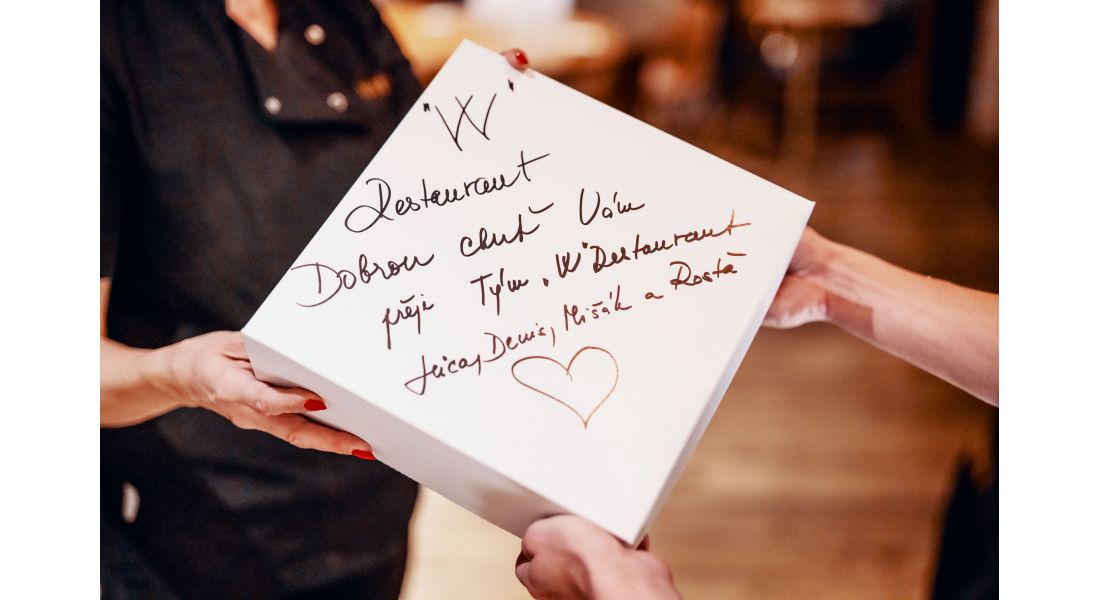 "W"
Restaurant
Dobrou chuť Vám
přeje Tým "W" Restaurant
Denis, Mišák a Rosťa